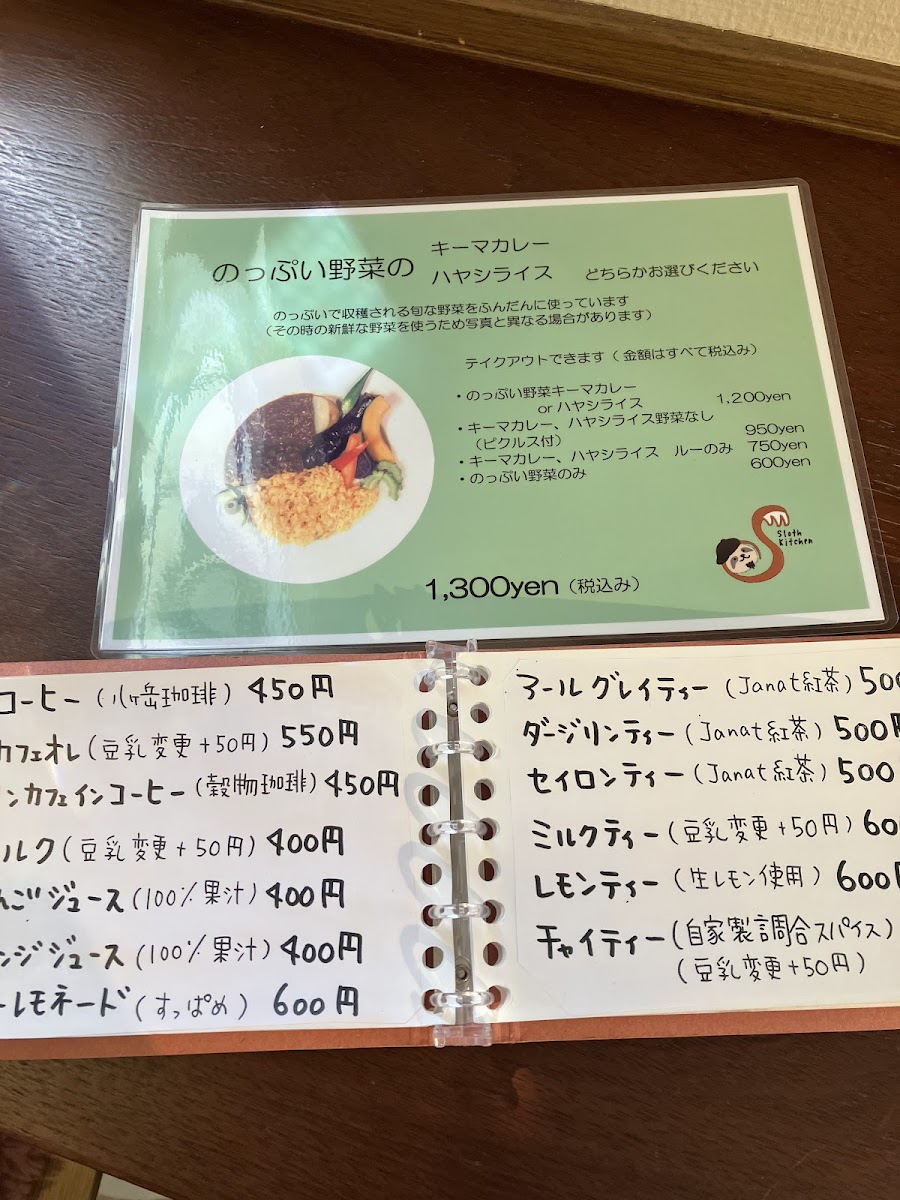 のっぷい野菜の
キーマカレー
ハヤシライス
どちらかお選びください
のっぷいで収穫される旬な野菜をふんだんに使っています
(その時の新鮮な野菜を使うため写真と異なる場合があります)
テイクアウトできます（金額はすべて税込み）
・のっぷい野菜キーマカレー
or ハヤシライス 1,200yen
・キーマカレー、ハヤシライス野菜なし
（ピクルス付） 950yen
・キーマカレー、ハヤシライス ルーのみ 750yen
・のっぷい野菜のみ 600yen
Sloth
Kitchen
1,300yen（税込み）
コーヒー(八ヶ岳珈琲) 450円
カフェオレ(豆乳変更+50円) 550円
ンカフェインコーヒー(穀物珈琲) 450円
ルク(豆乳変更+50円) 400円
んごジュース(100%果汁) 400円
ンジジュース(100%果汁) 400円
ーレモネード(すっぱめ) 600円
アールグレイティー(Janat紅茶) 500
ダージリンティー(Janat紅茶) 500円
セイロンティー(Janat紅茶) 500
ミルクティー(豆乳変更+50円) 600
レモンティー(生レモン使用) 600円
チャイティー(自家製調合スパイス)
(豆乳変更+50円)